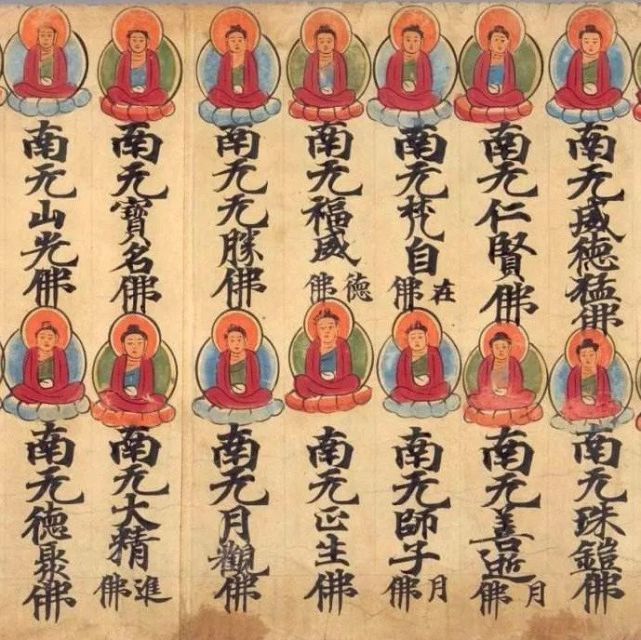 南无威德猛佛
南无珠鎧佛
南无仁賢佛
南无善逝月佛
南无梵自在佛
南无師子月佛
南无福威德佛
南无正生佛
南无无勝佛
南无月觀佛
南无寶名佛
南无大精進佛
南无山光佛
南无德聚佛